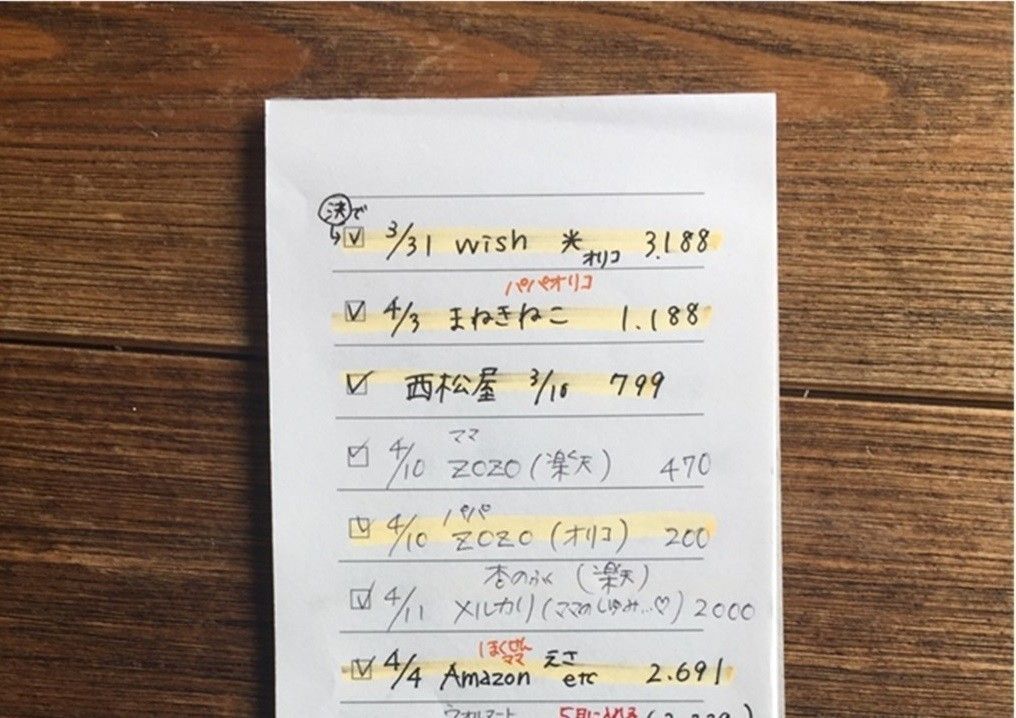 決で
↳☑ 3/31 wish 米 オリコ 3.188
パパオリコ
☑ 4/3 まねきねこ 1.188
☑ 西松屋 3/10 799
ママ
☑ 4/10 ZOZO (楽天) 470
パパ
☑ 4/10 ZOZO (オリコ) 200
杏のふく (楽天)
☑ 4/11 メルカリ (ママのしゅみ…♡) 2000
ママ えさ
☑ 4/4 Amazon etc 2.691